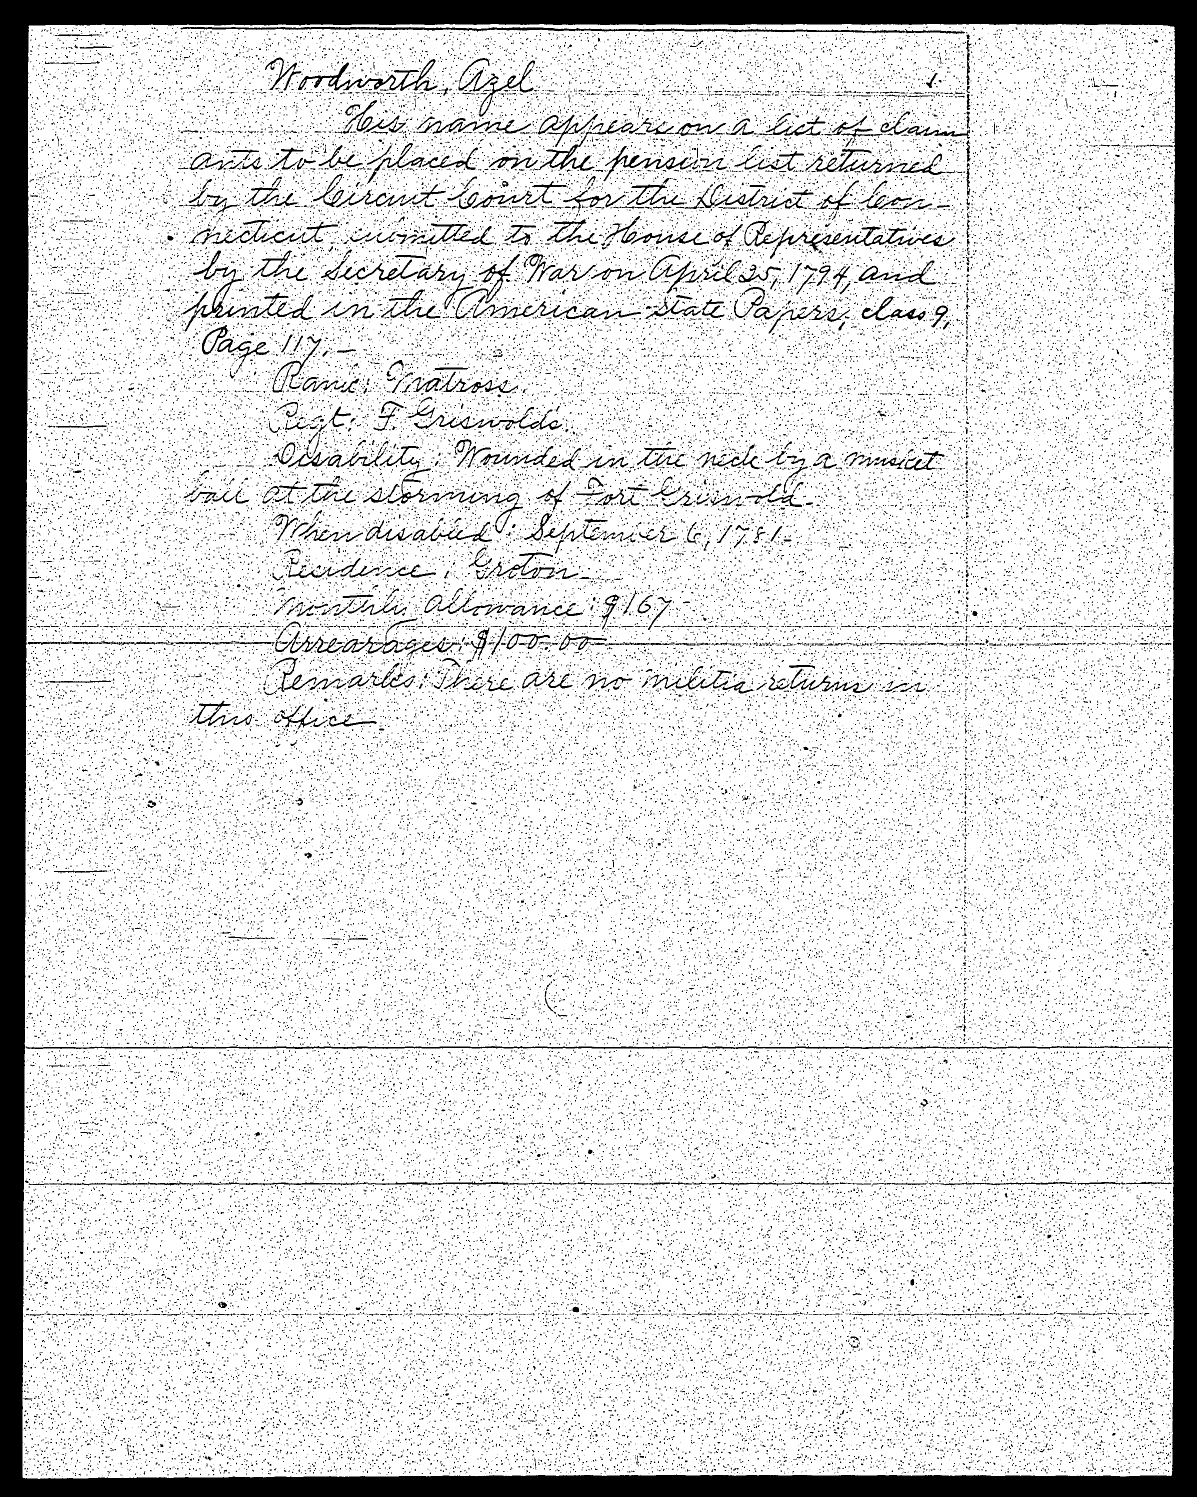 Woodworth, Azel 1.
His name appears on a list of claim
ants to be placed on the pension list returned
by the Circuit Court for the District of Con-
necticut, submitted to the House of Representatives
by the Secretary of War on April 25, 1794, and
printed in the American State Papers, class 9,
Page 117. —
Rank: Matross.
Regt: F. Griswold's.
Disability: Wounded in the neck by a musket
ball at the storming of Fort Griswold.
When disabled: September 6, 1781.
Residence: Groton.
Monthly allowance: $1.67
Arrearages: $100.00
Remarks: There are no militia returns in
this office.